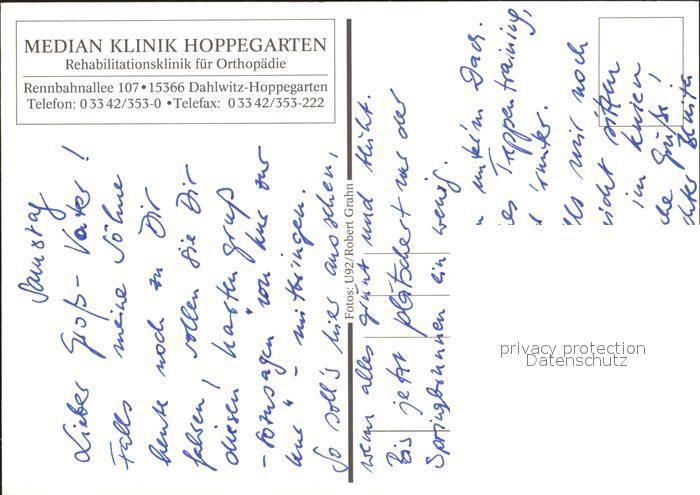 MEDIAN KLINIK HOPPEGARTEN
Rehabilitationsklinik für Orthopädie
Rennbahnallee 107 • 15366 Dahlwitz-Hoppegarten
Telefon: 0 33 42/353-0 • Telefax: 0 33 42/353-222
Samstag
Lieber Groß-Vater!
Falls meine Söhne
heute noch zu Dir
fahren, sollen sie Dir
diesen Karten gruß
- sozusagen "von Kur zur
Kur" - mitbringen.
So soll's hier aussehen,
wenn alles grünt und blüht.
Bis jetzt plätschert nur der
Springbrunnen ein wenig.
unterm Dach.
Treppentraining,
runter.
mir noch
nicht sitzen
im knien
Grüße!
Fotos: U92/Robert Grahn
privacy protection
Datenschutz